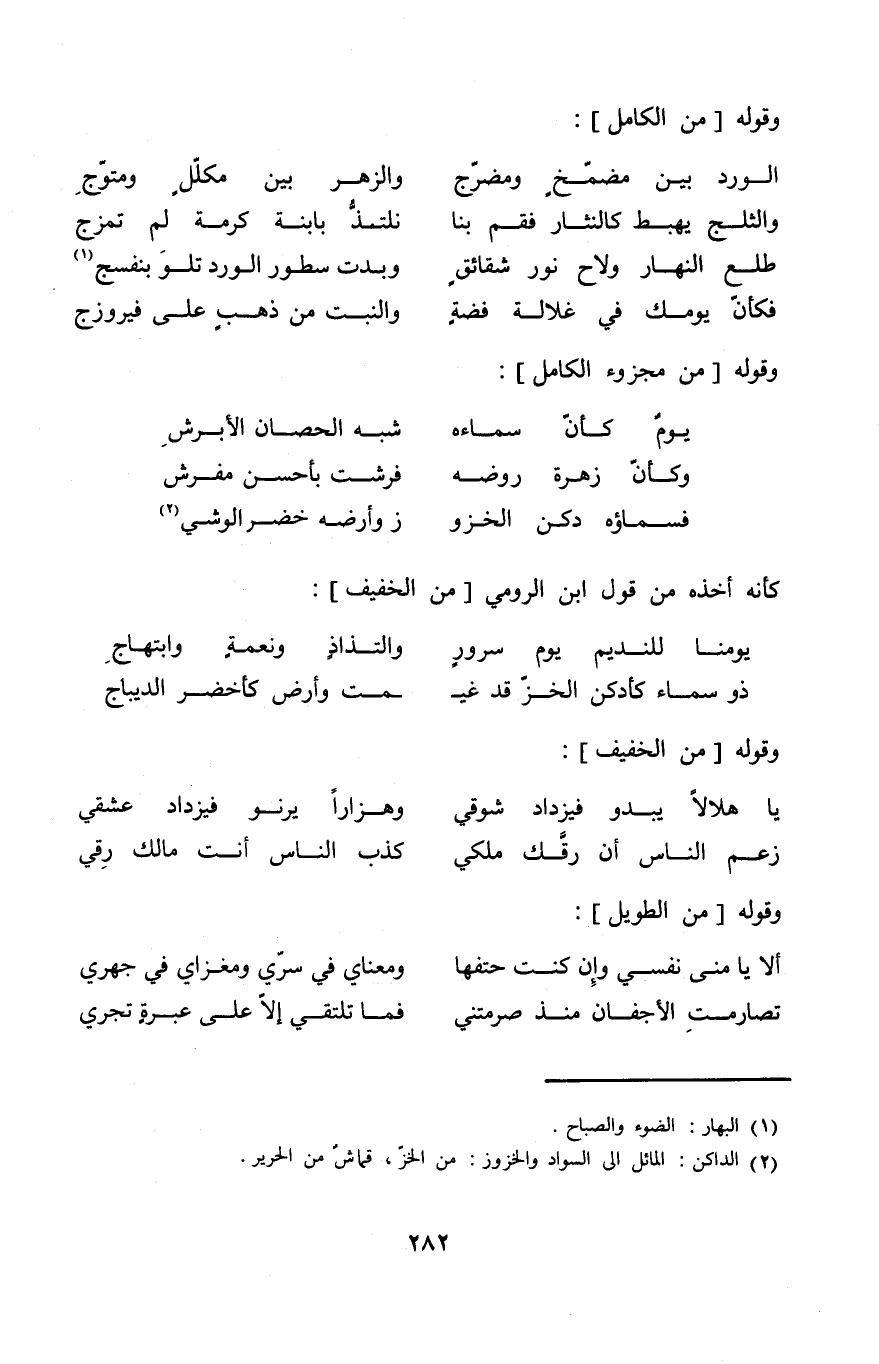 وقوله [ من الكامل ] :
الورد بين مضمّخٍ ومضرّج والزهر بين مكلّلٍ ومتوّجِ
والثلج يهبط كالنثار فقم بنا نلتذُّ بابنة كرمة لم تمزج
طلع النهار ولاح نور شقائقٍ وبدت سطور الورد تلوَ بنفسج(١)
فكأنّ يومك في غلالة فضةٍ والنبت من ذهبٍ على فيروزج
وقوله [ من مجزوء الكامل ] :
يومٌ كأنّ سماءه شبه الحصان الأبرشِ
وكأنّ زهرة روضه فرشت بأحسن مفرش
فسماؤه دكن الخزو ز وأرضه خضر الوشي(٢)
كأنه أخذه من قول ابن الرومي [ من الخفيف ] :
يومنا للنديم يوم سرورٍ والتذاذٍ ونعمةٍ وابتهاجِ
ذو سماء كأدكن الخزّ قد غيـ ـمت وأرض كأخضر الديباج
وقوله [ من الخفيف ] :
يا هلالاً يبدو فيزداد شوقي وهزاراً يرنو فيزداد عشقي
زعم الناس أن رقَّك ملكي كذب الناس أنت مالك رِقي
وقوله [ من الطويل ] :
ألا يا منى نفسي وإن كنت حتفها ومعناي في سرّي ومغزاي في جهري
تصارمتِ الأجفان منذ صرمتني فما تلتقي إلاّ على عبرةٍ تجري
(١) البهار : الضوء والصباح .
(٢) الداكن : المائل الى السواد والخزوز : من الخزّ ، قماشٌ من الحرير .
٢٨٢